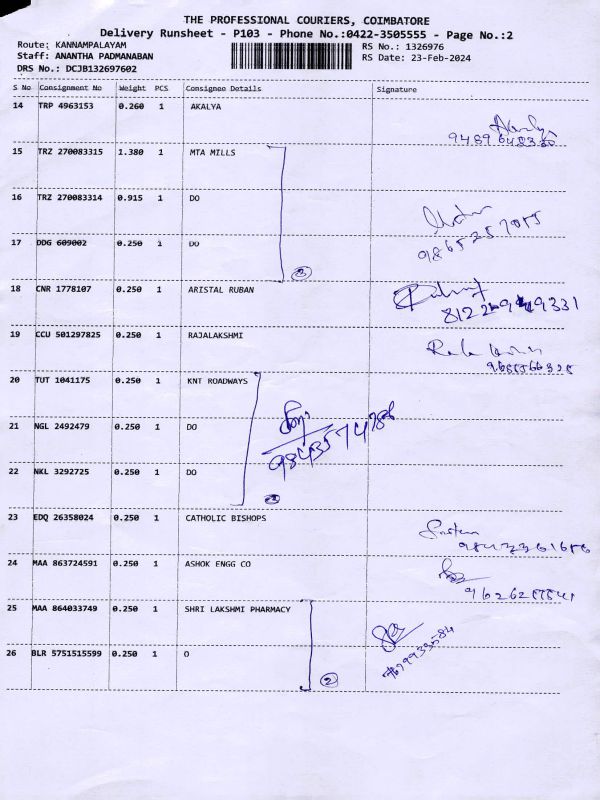 THE PROFESSIONAL COURIERS, COIMBATORE
Delivery Runsheet - P103 - Phone No.:0422-3505555 - Page No.:2
Route: KANNAMPALAYAM RS No.: 1326976
Staff: ANANTHA PADMANABAN RS Date: 23-Feb-2024
DRS No.: DCJB132697602
S No Consignment No Weight PCS Consignee Details Signature
14 TRP 4963153 0.260 1 AKALYA
15 TRZ 270083315 1.380 1 MTA MILLS
16 TRZ 270083314 0.915 1 DO
17 DDG 609002 0.250 1 DO
3
18 CNR 1778107 0.250 1 ARISTAL RUBAN
19 CCU 501297825 0.250 1 RAJALAKSHMI
20 TUT 1041175 0.250 1 KNT ROADWAYS
21 NGL 2492479 0.250 1 DO
22 NKL 3292725 0.250 1 DO
3
23 EDQ 26358024 0.250 1 CATHOLIC BISHOPS
24 MAA 863724591 0.250 1 ASHOK ENGG CO
25 MAA 864033749 0.250 1 SHRI LAKSHMI PHARMACY
26 BLR 5751515599 0.250 1 O
2